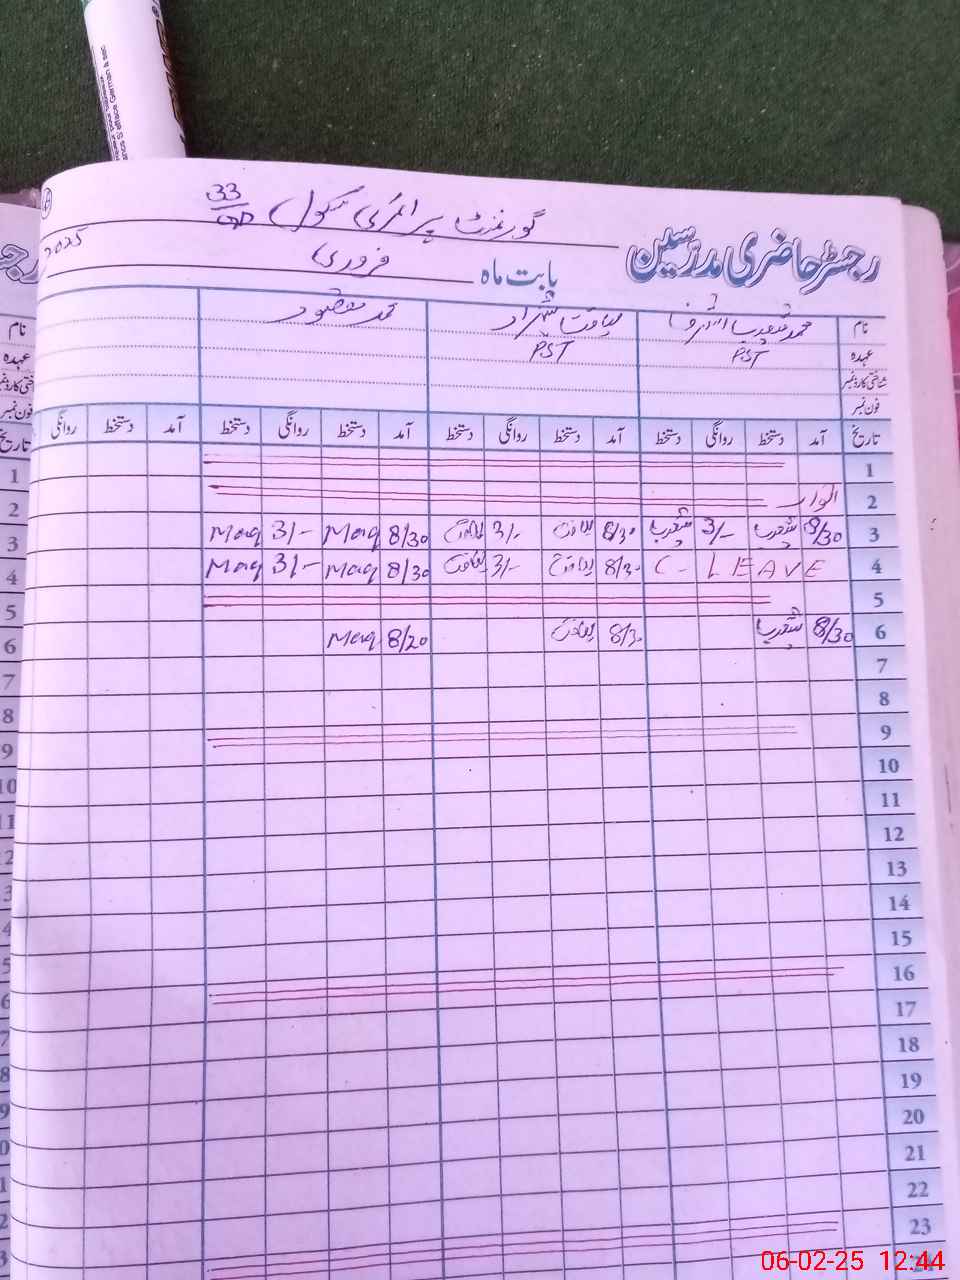 گورنمنٹ پرائمری سکول 33
رجسٹر حاضری مدرسین
2025
بابت ماہ فروری
نام محمد شعیب اشرف لیاقت شہزاد محمد مقصود
عہدہ PST PST
شناختی کارڈ نمبر
فون نمبر
تاریخ آمد دستخط روانگی دستخط آمد دستخط روانگی دستخط آمد دستخط روانگی دستخط آمد دستخط روانگی
1
2 اتوار
3 8/30 شعیب 3/- شعیب 8/30 لیاقت 3/- لیاقت 8/30 Maq 3/- Maq
4 C- LEAVE 8/30 لیاقت 3/- لیاقت 8/30 Maq 3/- Maq
5
6 8/30 شعیب 8/30 لیاقت 8/20 Maq
7
8
9
10
11
12
13
14
15
16
17
18
19
20
21
22
23
24
06-02-25 12:44